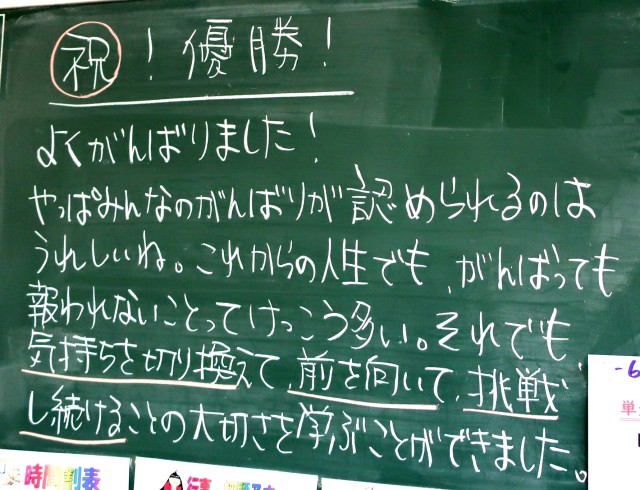 祝！優勝！
よくがんばりました！
やっぱみんなのがんばりが認められるのは
うれしいね。これからの人生でも、がんばっても
報われないことってけっこう多い。それでも
気持ちを切り換えて、前を向いて、挑戦
し続けることの大切さを学ぶことができました。
-6
単
時間割表
行事